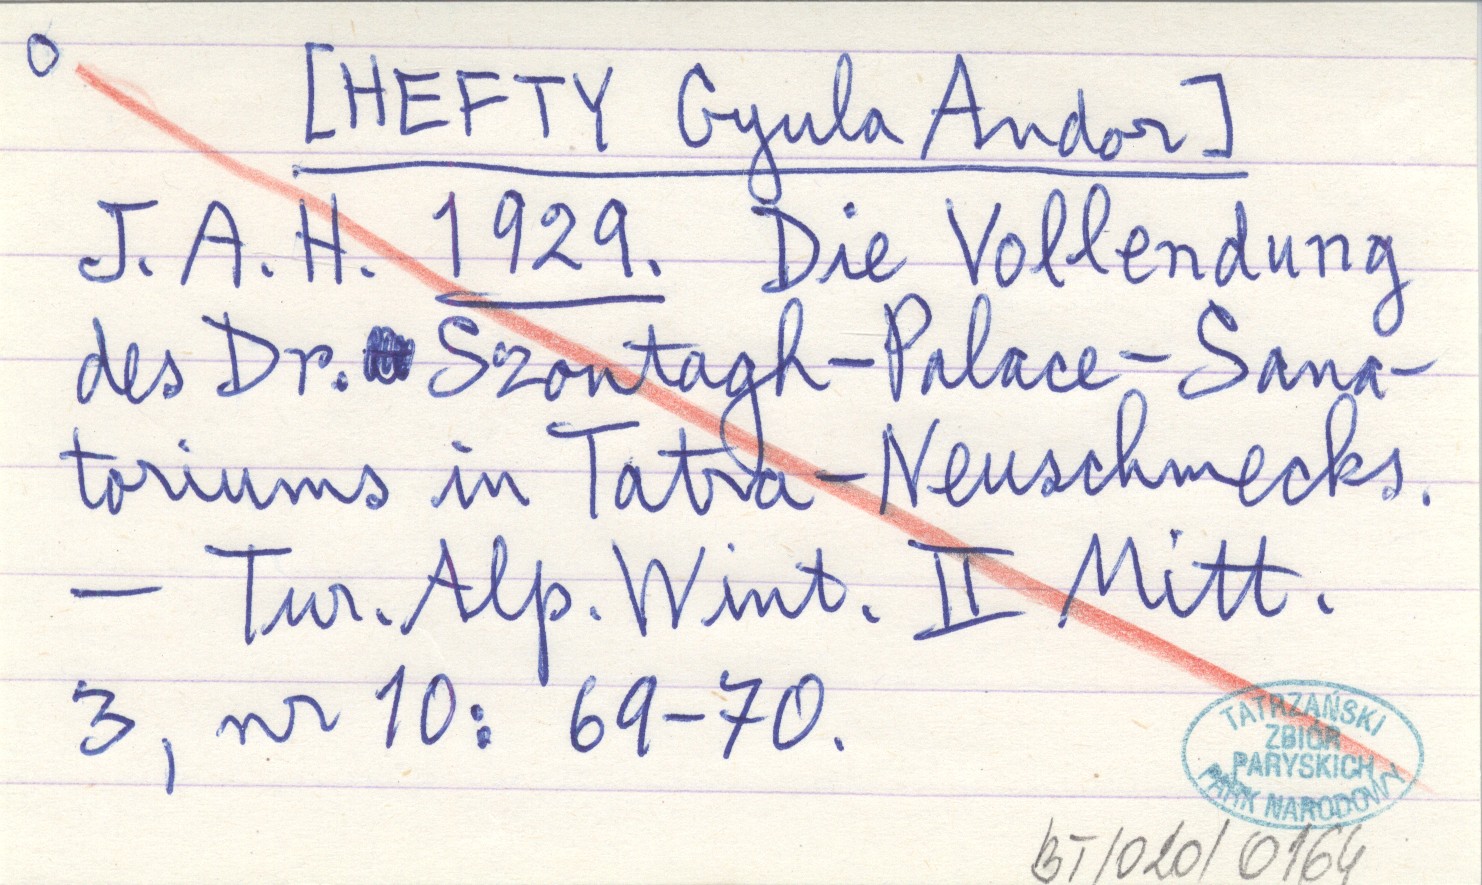 O
[HEFTY Gyula Andor]
J. A. H. 1929. Die Vollendung
des Dr. Szontagh-Palace-Sana-
toriums in Tatra-Neuschmecks.
— Tur. Alp. Wint. II Mitt.
3, nr 10: 69-70.
TATRZAŃSKI
ZBIÓR
PARYSKICH
PARK NARODOWY
BT/020/0164